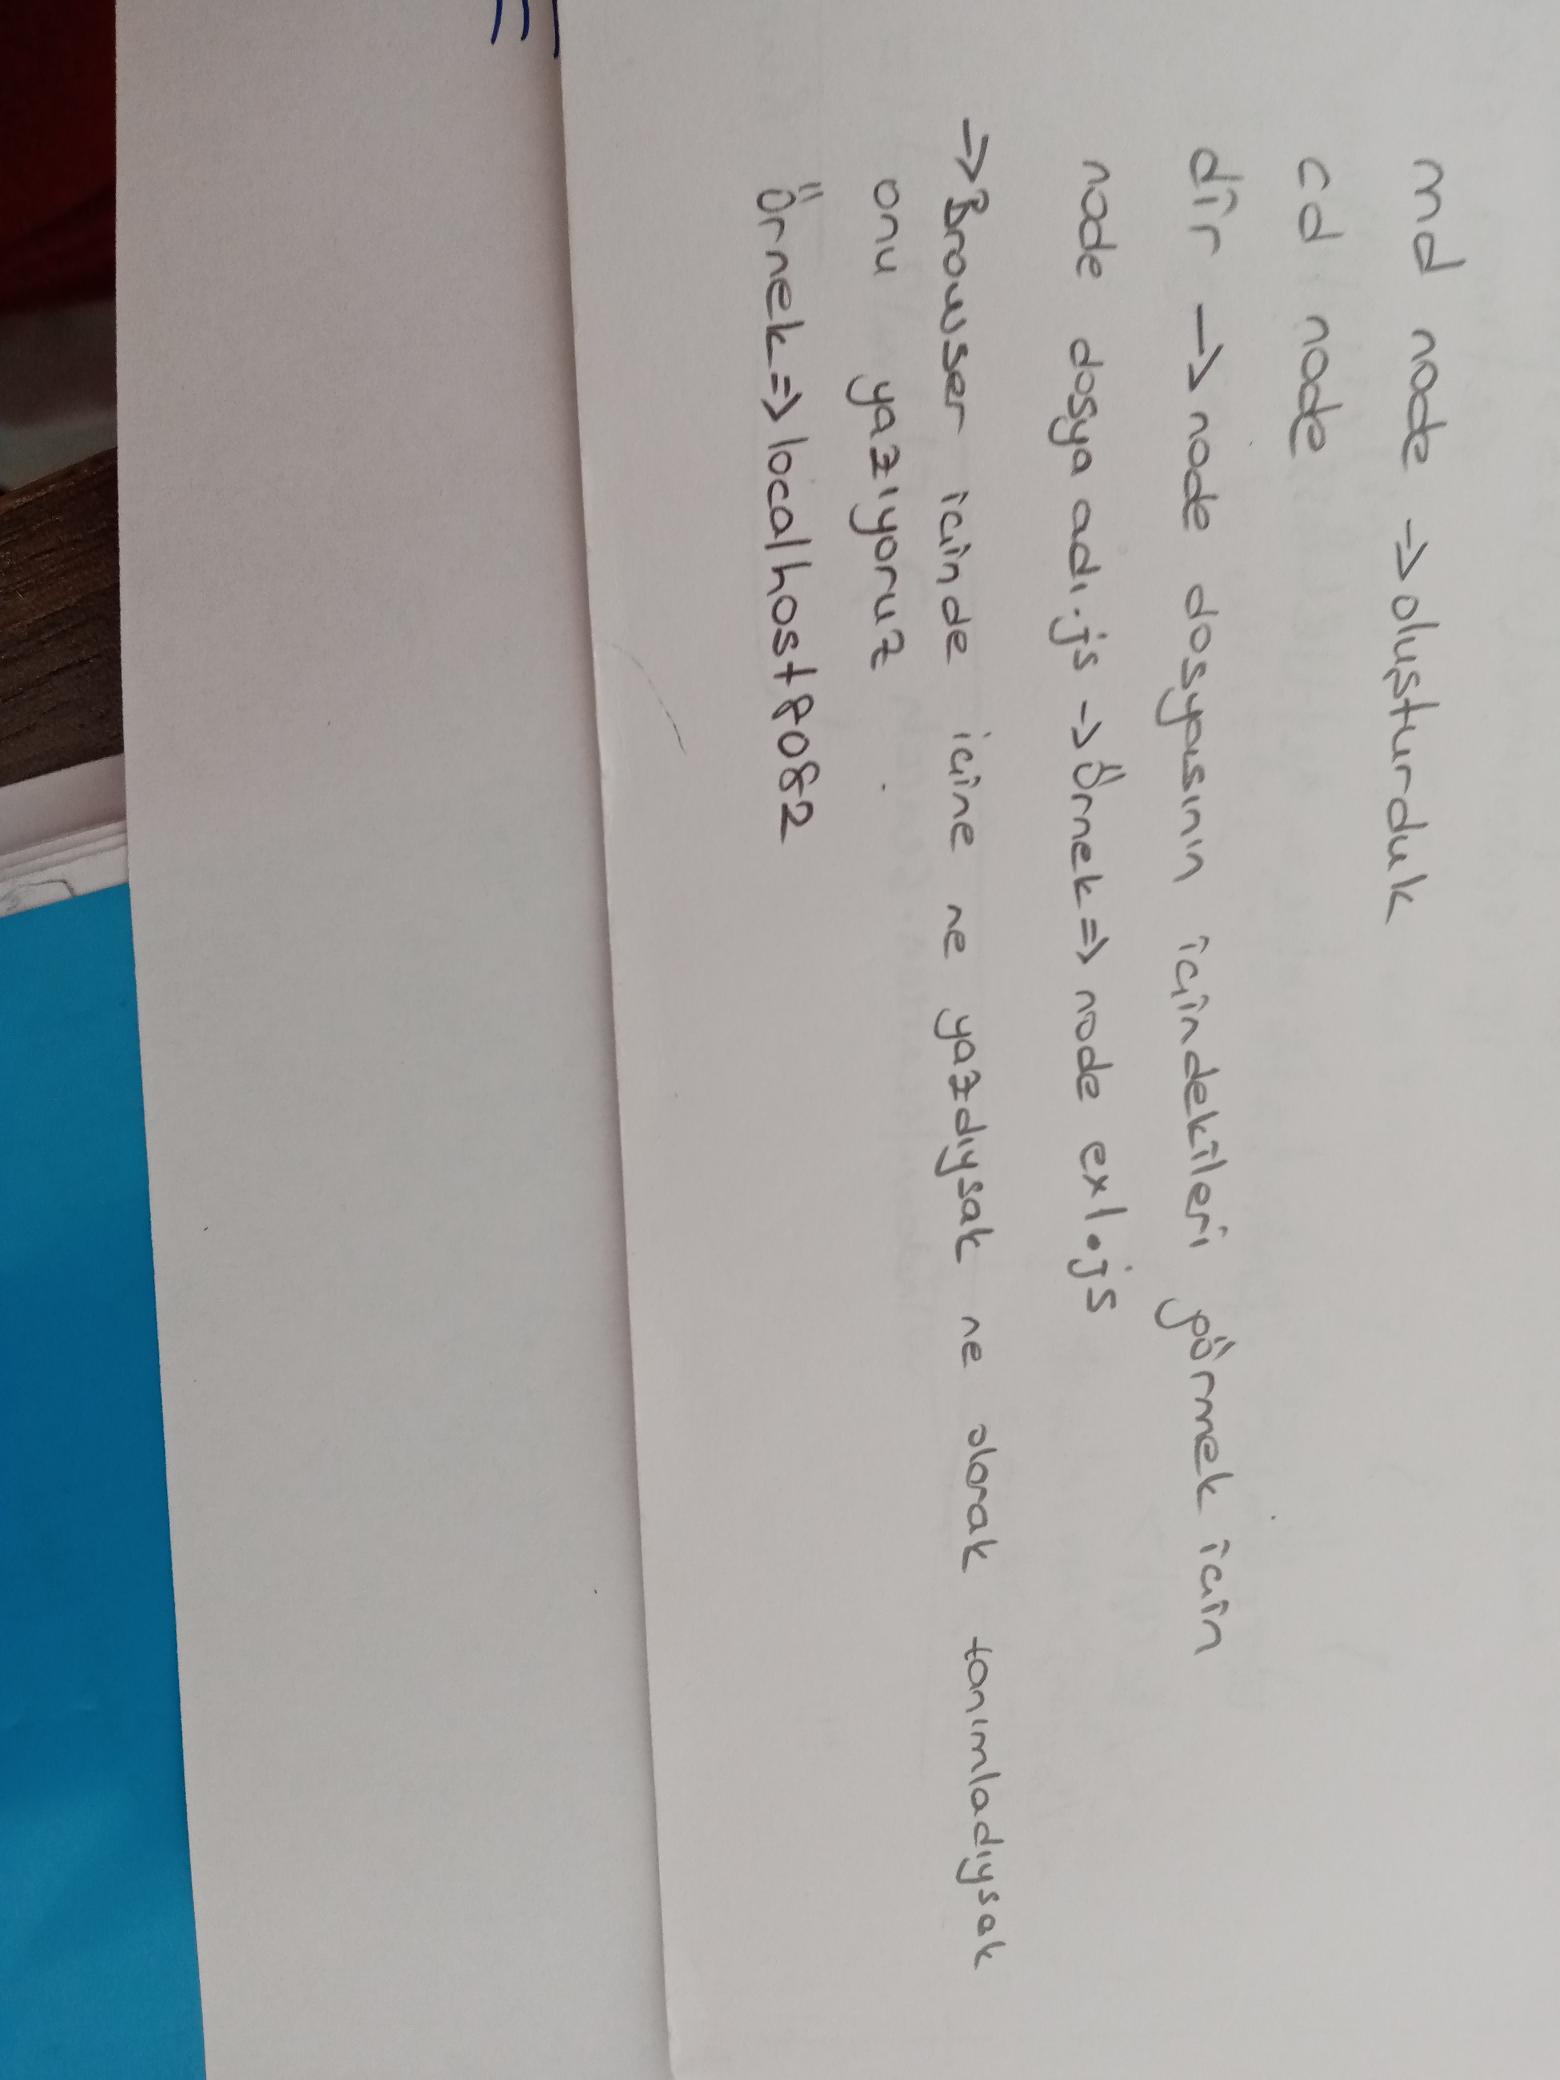 md node -> oluşturduk
cd node
dir -> node dosyasının içindekileri görmek için
node dosya adı.js -> Örnek => node ex1.js
=> Browser içinde içine ne yazdıysak ne olarak tanımladıysak
onu yazıyoruz
Örnek => localhost8082